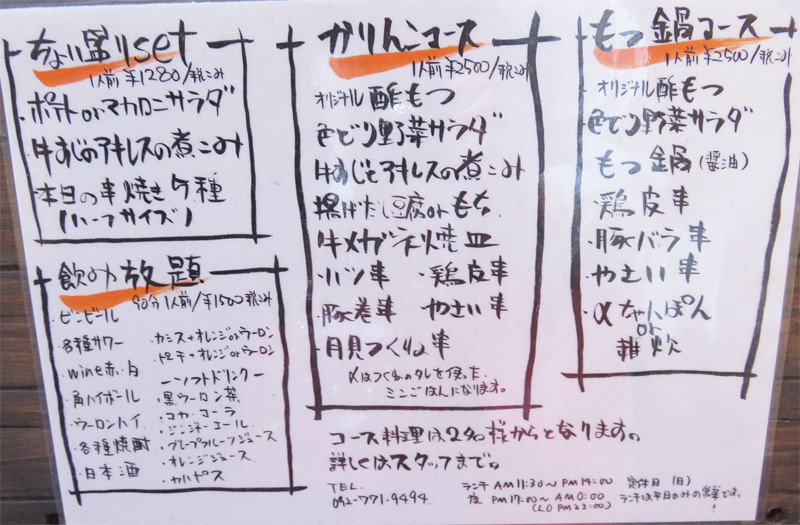 ちょい盛りset
1人前¥1280/税こみ
・ポテトorマカロニサラダ
・牛すじのアキレスの煮こみ
・本日の串焼き5種
(ハーフサイズ)
飲み放題
90分1人前/¥1500税こみ
・ビンビール
・各種サワー
・wine赤、白
・角ハイボール
・ウーロンハイ
・各種焼酎
・日本酒
・カシス+オレンジorウーロン
・ピーチ+オレンジorウーロン
ーソフトドリンクー
・黒ウーロン茶
・コカ・コーラ
・ジンジャーエール
・グレープフルーツジュース
・オレンジジュース
・カルピス
かりんこコース
1人前¥2500/税こみ
オリジナル酢もつ
色どり野菜サラダ
牛すじとアキレスの煮こみ
揚げだし豆腐orもち
牛メガネ焼皿
・ハツ串 ・鶏皮串
・豚巻串 やさい串
・月見つくね串
〆はつくねのタレを使った
ミンごはんになります。
もつ鍋コース
1人前¥2500/税こみ
オリジナル酢もつ
・色どり野菜サラダ
もつ鍋(醤油)
・鶏皮串
・豚バラ串
・やさい串
・〆ちゃんぽん
or
雑炊
コース料理は2名様からとなります。
詳しくはスタッフまで。
TEL
092-771-9494
ランチ AM11:30~PM14:00
夜 PM17:00~AM0:00
(LO PM23:00)
定休日(日)
ランチは平日のみの営業です。!